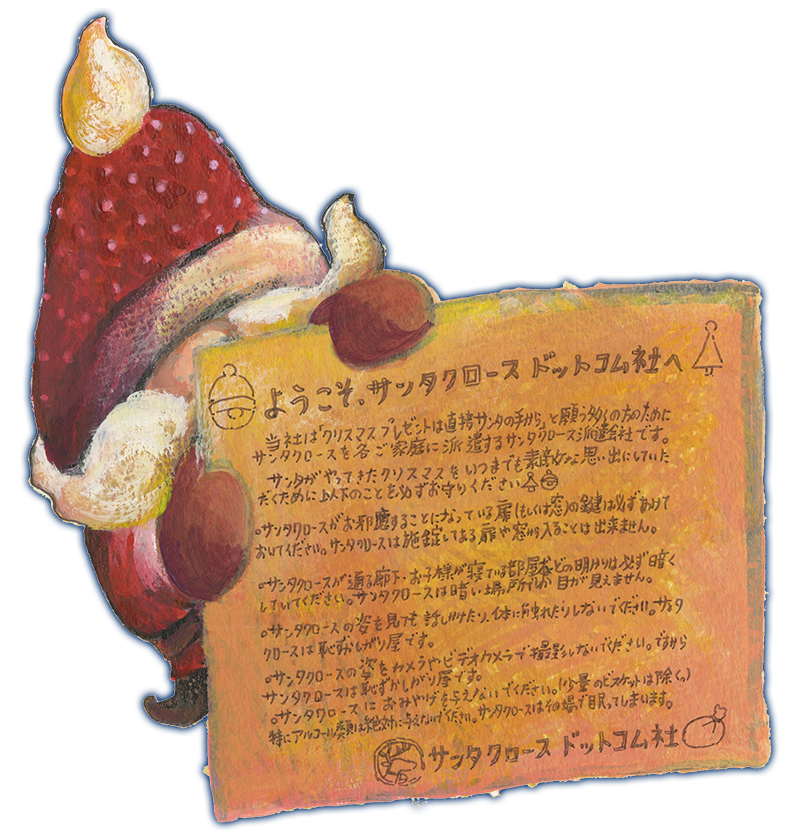 ようこそ。サンタクロース ドットコム社へ
当社は「クリスマスプレゼントは直接サンタの手から」と願う多くの方のために
サンタクロースを各ご家庭に派遣するサンタクロース派遣会社です。
サンタがやってきたクリスマスをいつまでも素敵な思い出にしていた
だくために以下のことを必ずお守りください
○サンタクロースがお邪魔することになっている扉(もしくは窓)の鍵は必ずあけて
おいてください。サンタクロースは施錠してある扉や窓から入ることは出来ません。
○サンタクロースが通る廊下・お子様が寝ている部屋などの明かりは必ず暗く
していてください。サンタクロースは暗い場所でしか目が見えません。
○サンタクロースの姿を見ても話しかけたり、体に触れたりしないでください。サンタ
クロースは恥ずかしがり屋です。
○サンタクロースの姿をカメラやビデオカメラで撮影しないでください。ですから
サンタクロースは恥ずかしがり屋です。
○サンタクロースにおみやげを与えないでください。(少量のビスケットは除く。)
特にアルコール類は絶対に与えないでください。サンタクロースはその場で眠ってしまいます。
サンタクロース ドットコム社